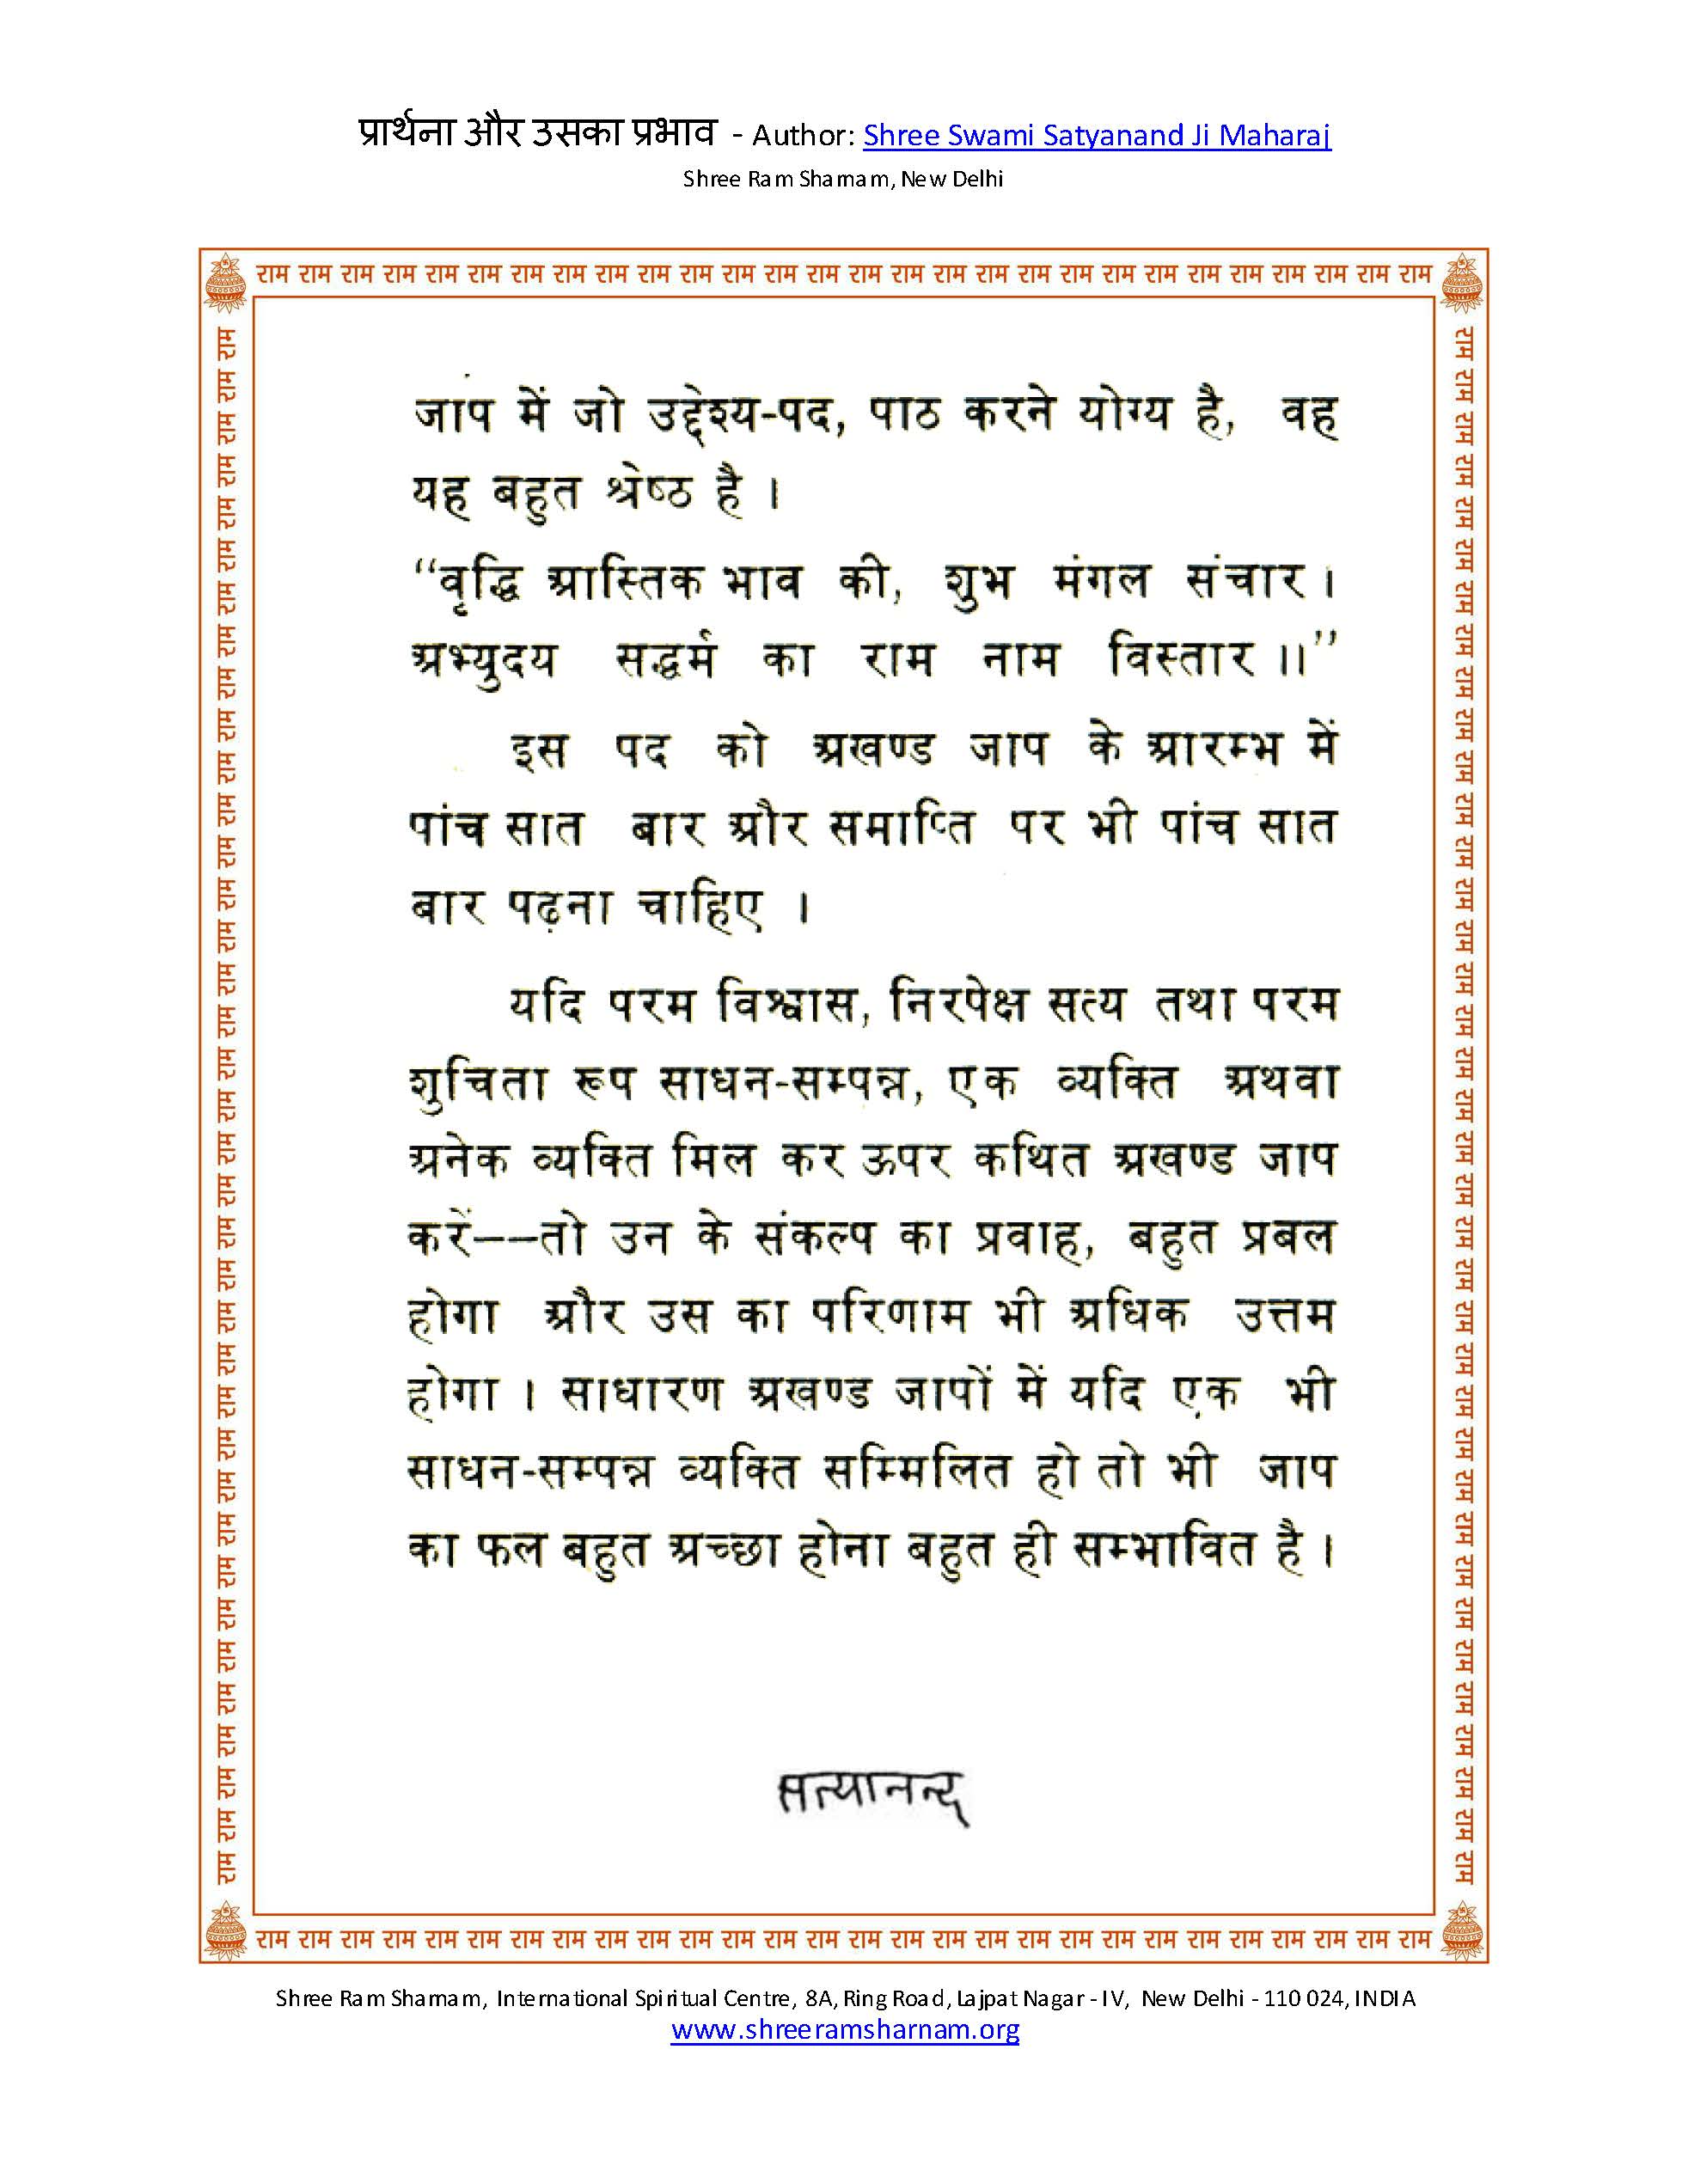 प्रार्थना और उसका प्रभाव - Author: Shree Swami Satyanand Ji Maharaj
Shree Ram Sharnam, New Delhi
राम राम राम राम राम राम राम राम राम राम राम राम राम राम राम राम राम राम राम राम राम राम राम राम राम राम राम राम
जाप में जो उद्देश्य-पद, पाठ करने योग्य है, वह
यह बहुत श्रेष्ठ है ।
“वृद्धि आस्तिक भाव की, शुभ मंगल संचार ।
अभ्युदय सद्धर्म का राम नाम विस्तार ।।”
इस पद को अखण्ड जाप के आरम्भ में
पांच सात बार और समाप्ति पर भी पांच सात
बार पढ़ना चाहिए ।
यदि परम विश्वास, निरपेक्ष सत्य तथा परम
शुचिता रूप साधन-सम्पन्न, एक व्यक्ति अथवा
अनेक व्यक्ति मिल कर ऊपर कथित अखण्ड जाप
करें--तो उन के संकल्प का प्रवाह, बहुत प्रबल
होगा और उस का परिणाम भी अधिक उत्तम
होगा । साधारण अखण्ड जापों में यदि एक भी
साधन-सम्पन्न व्यक्ति सम्मिलित हो तो भी जाप
का फल बहुत अच्छा होना बहुत ही सम्भावित है ।
सत्यानन्द
राम राम राम राम राम राम राम राम राम राम राम राम राम राम राम राम राम राम राम राम राम राम राम राम राम राम राम राम
राम राम राम राम राम राम राम राम राम राम राम राम राम राम राम राम राम राम राम राम राम राम राम राम राम राम राम राम राम राम राम राम राम राम राम राम राम
राम राम राम राम राम राम राम राम राम राम राम राम राम राम राम राम राम राम राम राम राम राम राम राम राम राम राम राम राम राम राम राम राम राम राम राम राम
Shree Ram Sharnam, International Spiritual Centre, 8A, Ring Road, Lajpat Nagar - IV, New Delhi - 110 024, INDIA
www.shreeramsharnam.org